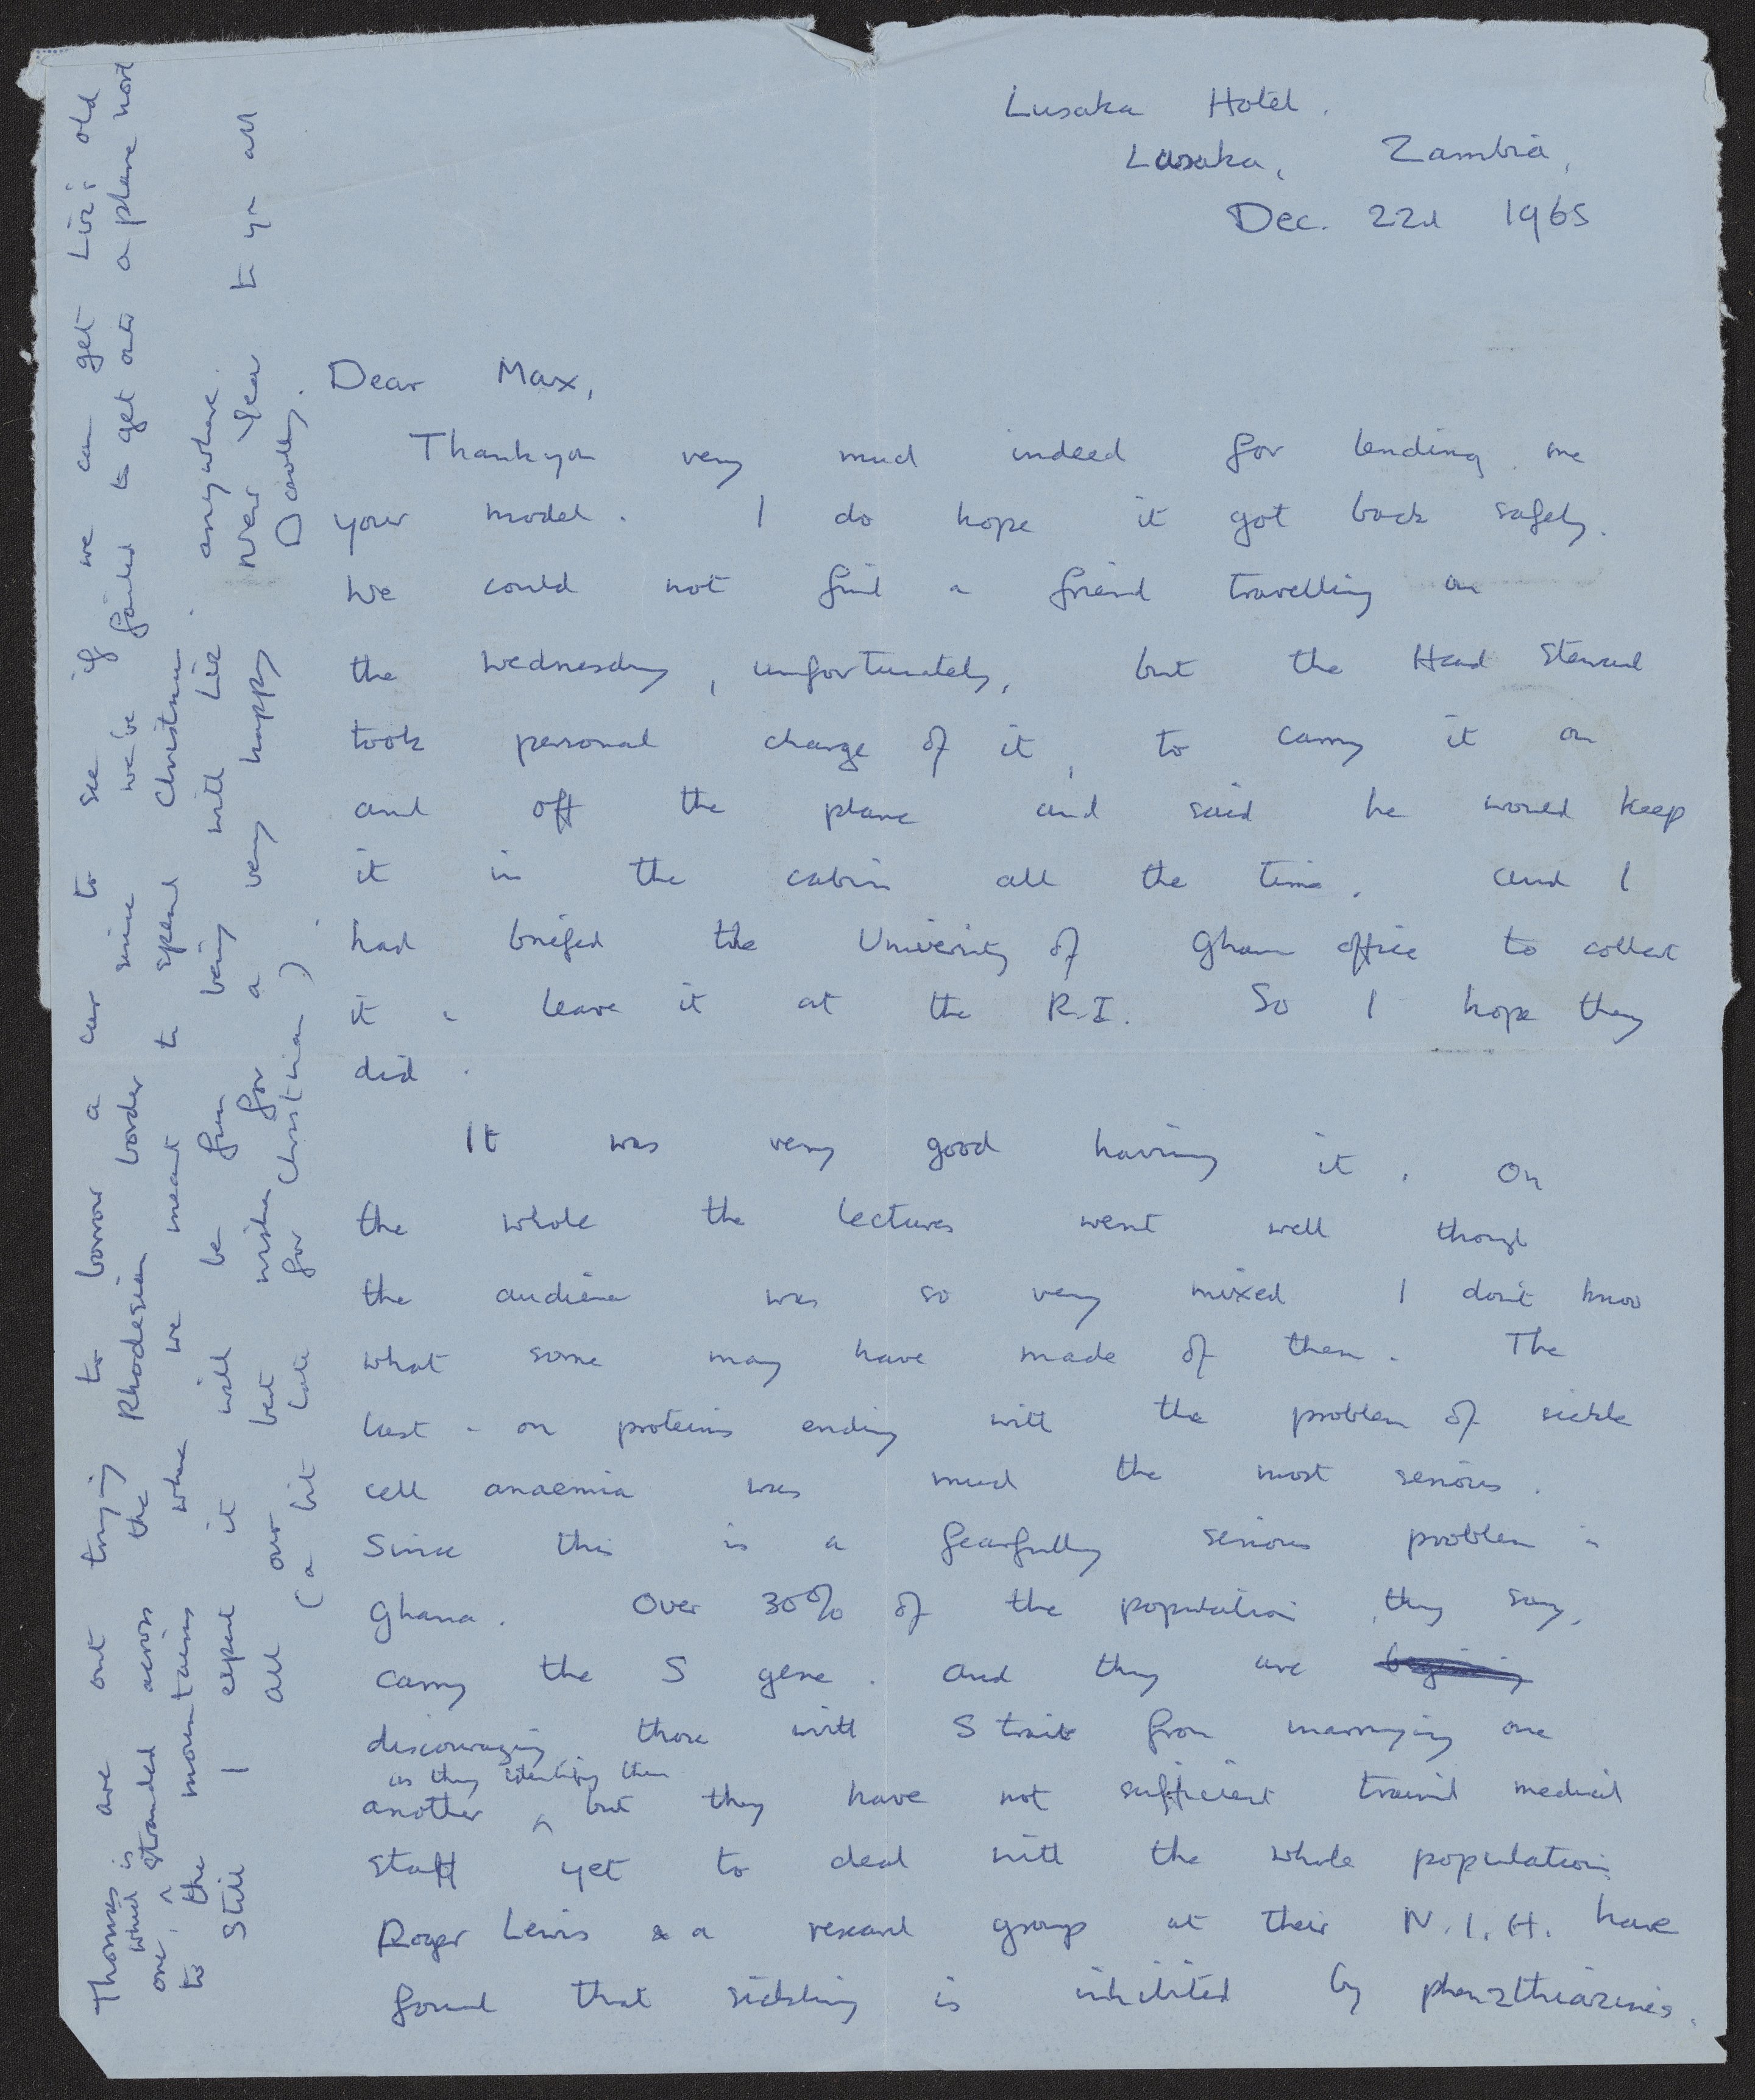 Lusaka Hotel.
Lusaka, Zambia,
Dec. 22d 1965
Dear Max,
Thankyou very much indeed for lending me
your model. I do hope it got back safely.
We could not find a friend travelling on
the Wednesday, unfortunately, but the Head Steward
took personal charge of it, to carry it on
and off the plane and said he would keep
it in the cabin all the time. and I
had briefed the University of Ghana office to collect
it & leave it at the R.I. So I hope they
did.
It was very good having it. On
the whole the lectures went well though
the audience was so very mixed I don't know
what some may have made of them. The
last - on proteins ending with the problem of sickle
cell anaemia was much the most serious.
Since this is a fearfully serious problem in
Ghana. Over 30% of the population, they say,
carry the S gene. and they are
discouraging those with S trait from marrying one
as they identify them
another ^ but they have not sufficient trained medical
staff yet to deal with the whole population
Roger Lewis & a research group at their N.I.H. have
found that sickling is inhibited by phenothiazines.
Thomas are out trying to borrow a car to see if we can get Liz's old
which is
one, ^ stranded across the Rhodesian border since we've failed to get onto a plane north
to the mountains where we meant to spend Christmas.
Still I expect it will be fun being with Liz anywhere.
All our best wishes for a very happy New Year to yr all
(a bit late for Christmas)
Dorothy.